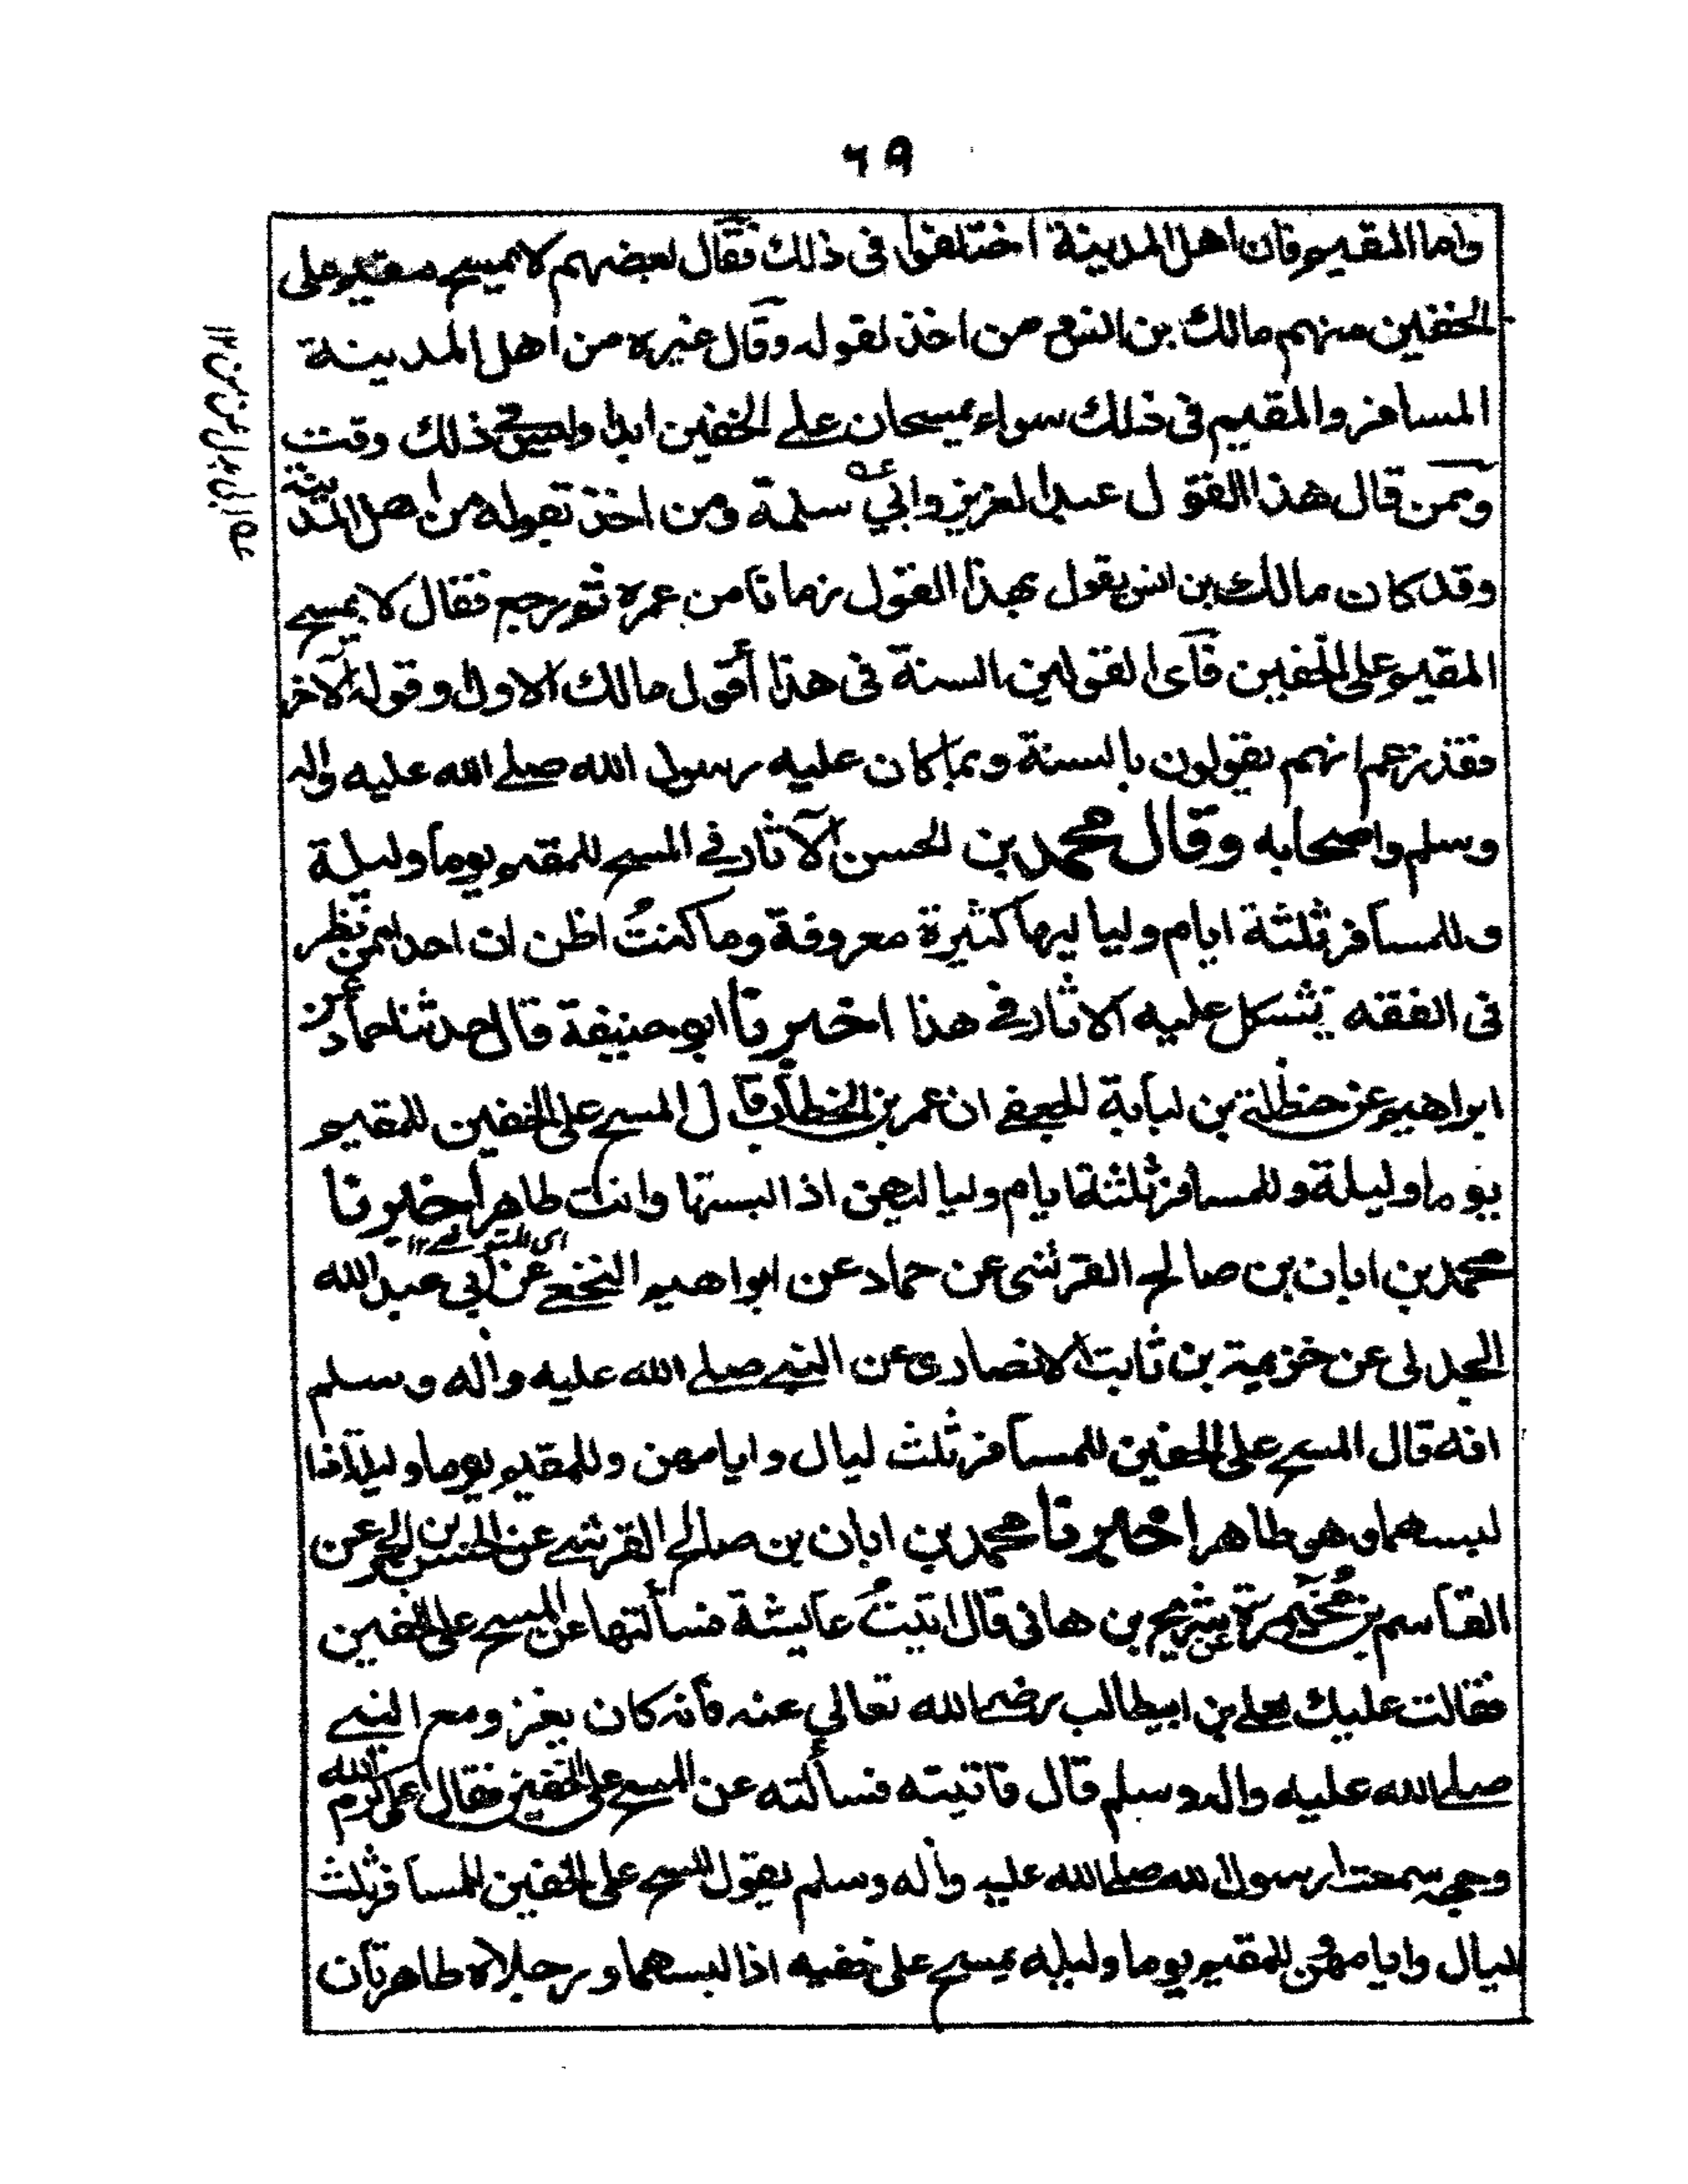 ٦٩
واما المقيم فان اهل المدينة اختلفوا فى ذلك فقال بعضهم لا يمسح مقيم على
الخفين منهم مالك بن انس من اخذ بقوله وقال غيره من اهل المدينة
المسافر والمقيم فى ذلك سواء يمسحان على الخفين ابدا وليس فى ذلك وقت
وممن قال هذا القول عبد العزيز وابي سلمة ومن اخذ بقوله من اهل المدينة
وقد كان مالك بن انس يقول بهذا القول زمانا من عمره ثم رجع فقال لا يمسح
المقيم على الخفين فاى القولين السنة فى هذا أقول مالك الاول وقوله الآخر
فقد زعم انهم يقولون بالسنة وبما كان عليه رسول الله صلے الله عليه واله
وسلم واصحابه وقال محمد بن الحسن الآثار فے المسح للمقيم يوما وليلة
وللمسافر ثلثة ايام ولياليها كثيرة معروفة وما كنتُ اظن ان احدا ممن نظر
فى الفقه يشكل عليه الاثار فے هذا اخبرنا ابو حنيفة قال حدثنا حماد عن
ابراهيم عن حنظلة بن لبابة الجعفے ان عمر بن الخطاب قال المسح على الخفين للمقيم
يوما وليلة وللمسافر ثلثة ايام ولياليهن اذا لبستها وانت طاهر اخبرنا
محمد بن ابان بن صالح القرشى عن حماد عن ابراهيم النخعے عن أبي عبد الله
الجدلى عن خزيمة بن ثابت الانصارى عن النبے صلے الله عليه واٰله وسلم
انه قال المسح على الخفين للمسافر ثلث ليال وايامهن وللمقيم يوما وليلة اذا
لبسهما وهو طاهر اخبرنا محمد بن ابان بن صالح القرشے عن الحسن بن الحر عن
القاسم بن مُخَيمرة عن شريح بن هانى قال اتيتُ عايشة فسألتها عن المسح على الخفين
فقالت عليك بعلے بن ابيطالب رضے الله تعالي عنه فانه كان يغزو مع النبے
صلے الله عليه واله وسلم قال فاتيته فسألته عن المسح على الخفين فقال على كرم الله
وجهه سمعت رسول الله صلے الله عليه واٰله وسلم يقول المسح على الخفين للمسافر ثلث
ليال وايامهن للمقيم يوما وليله يمسح على خفيه اذا لبسهما ورجلاه طاهرتان